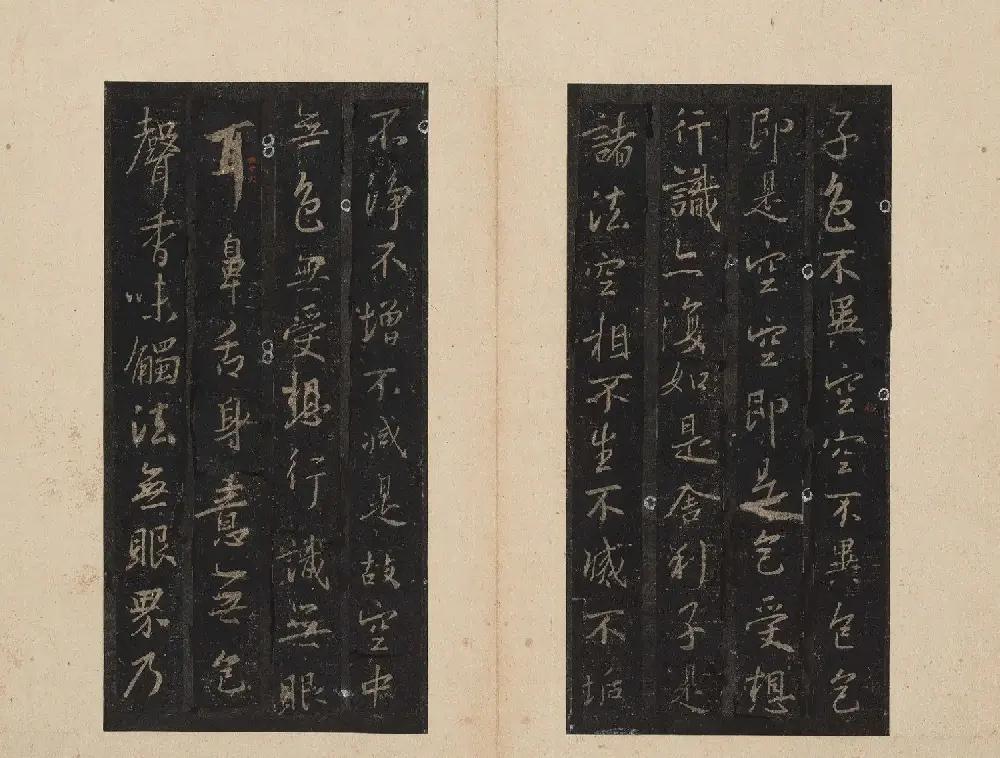 子色不異空空不異色色
即是空空即是色受想
行識亦復如是舍利子是
諸法空相不生不滅不垢
不淨不增不減是故空中
無色無受想行識無眼
耳鼻舌身意無色
聲香味觸法無眼界乃